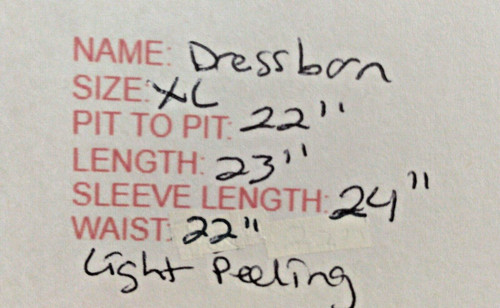 NAME: Dressbarn
SIZE: XL
PIT TO PIT: 22"
LENGTH: 23"
SLEEVE LENGTH: 24"
WAIST: 22"
Light Peeling